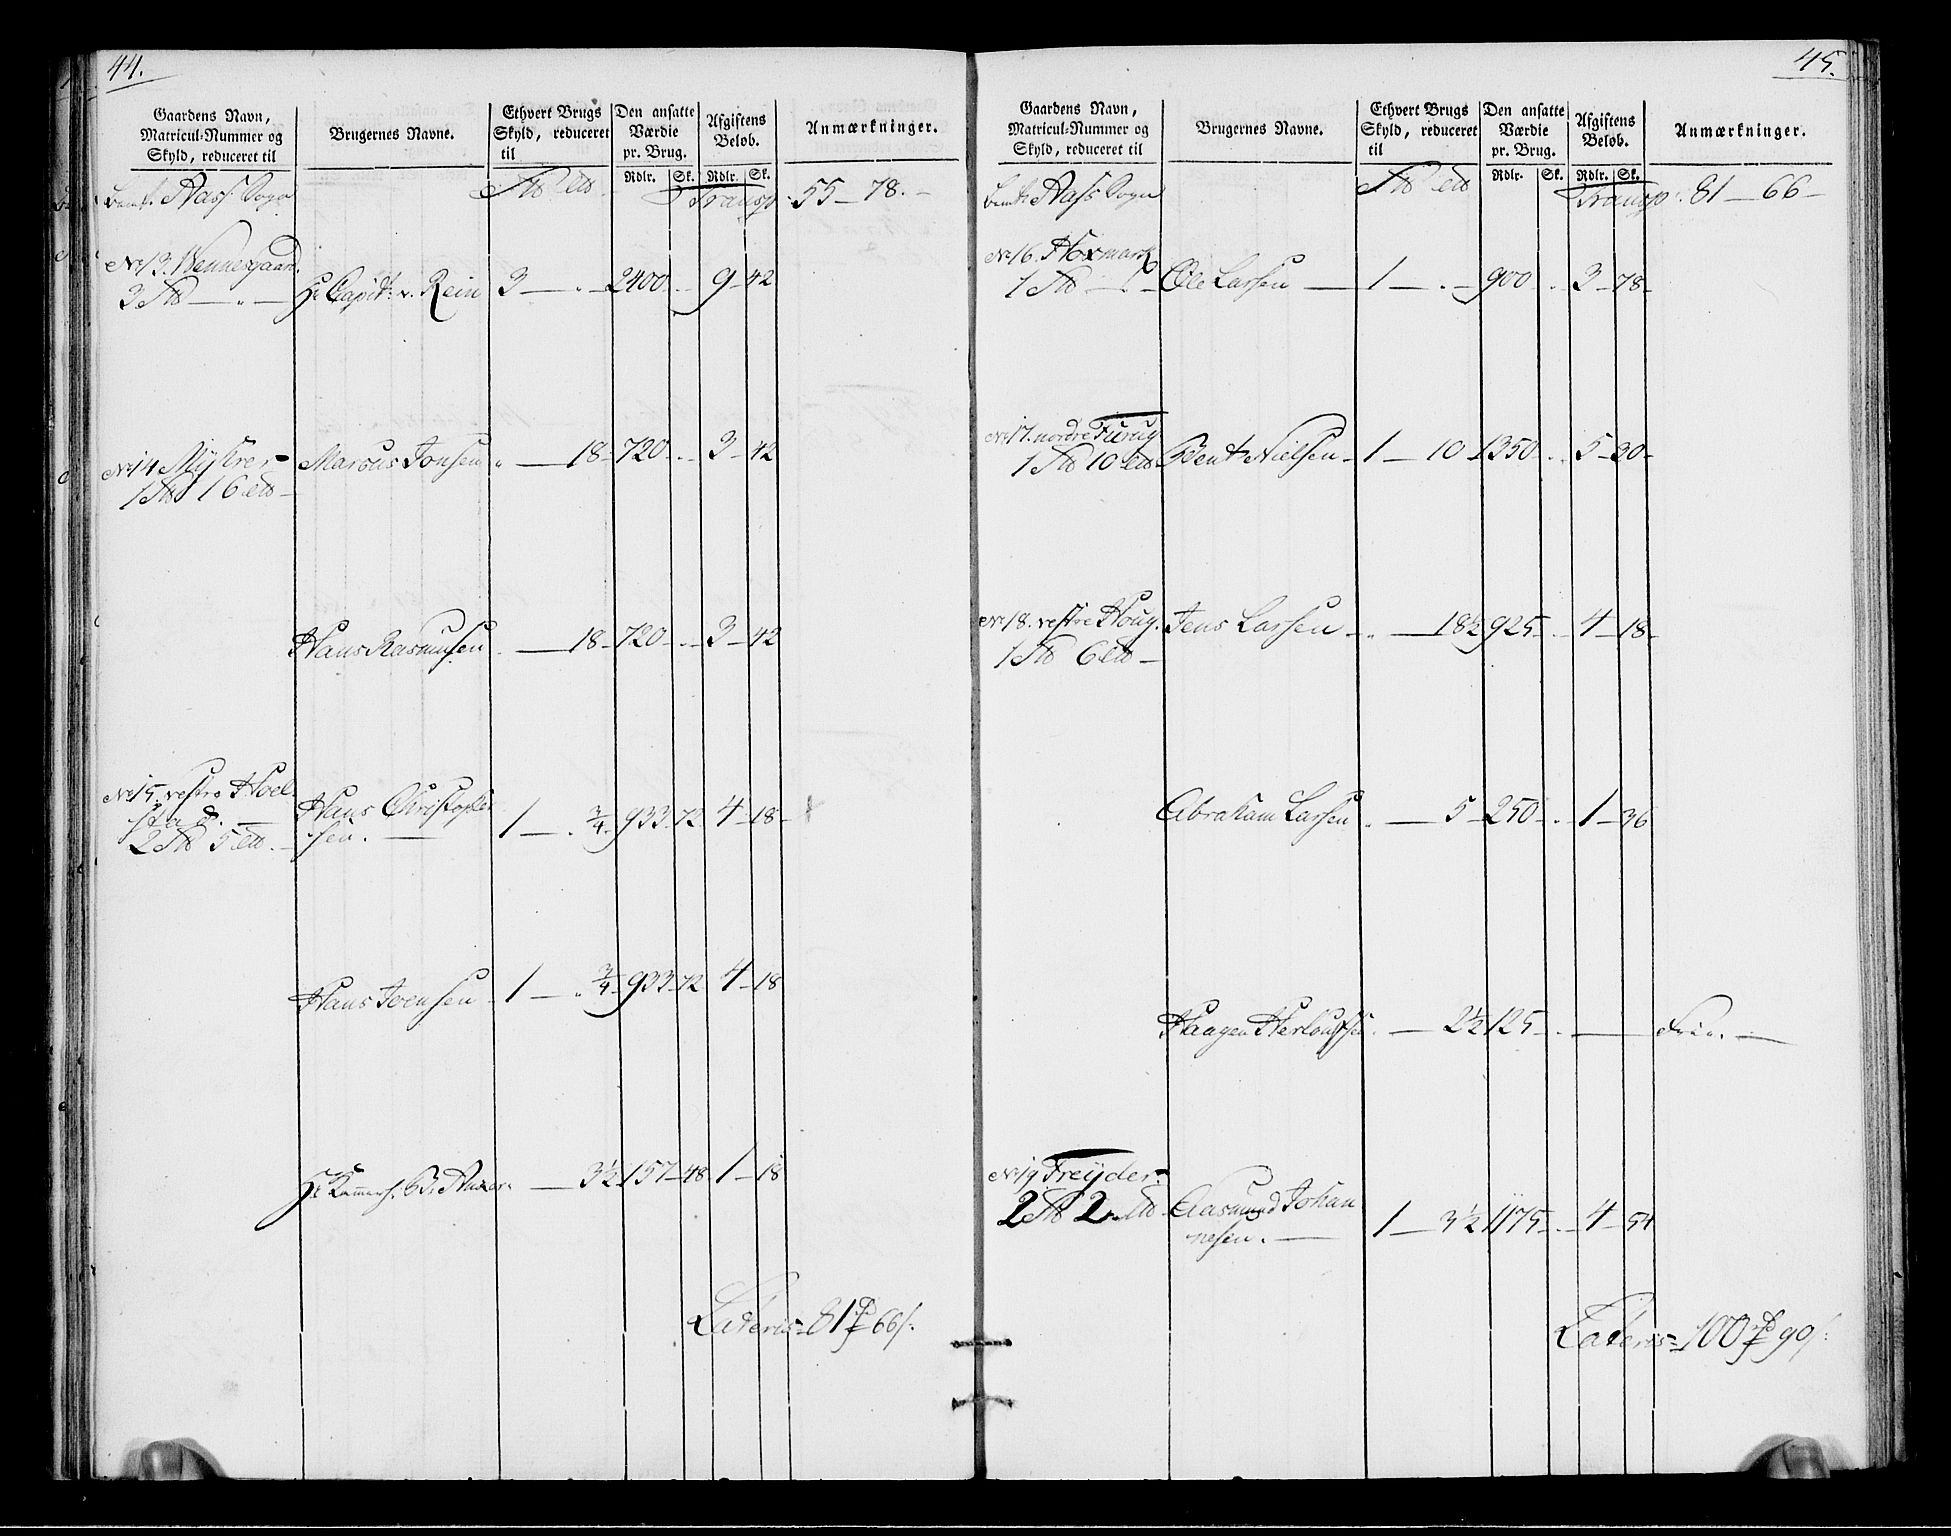 44.
Gaardens Navn, Matricul-Nummer og Skyld, reduceret til
Brugernes Navne.
Ethvert Brugs Skyld, reduceret til
Den ansatte Værdie pr. Brug.
Afgiftens Beløb.
Anmærkninger.
Rdlr. Sk. Rdlr. Sk.
Sogn Transp. 55 - 78. -
No 13. Wennesgaard.
3 - " - Hr Capit: v. Rein 3 - " - 2400 - " - 9 - 42
No 14 Mystrer - Marcus Jonsen " - 18 - 720 - " - 3 - 42
1 16 -
Hans Rasmussen " - 18 - 720 - " - 3 - 42
No 15. vestre Hoel- Hans Christopher
stad. - sen. - 1 - " 3/4 - 933 - 72 4 - 18 -
2 5 -
Hans Joensen - 1 - " 3/4 - 933 - 72 4 - 18
Hr Kammerh. B: Anker - - 3½ 157 - 48 1 - 18
Lateris = 81 66 s:
45.
Gaardens Navn, Matricul-Nummer og Skyld, reduceret til
Brugernes Navne.
Ethvert Brugs Skyld, reduceret til
Den ansatte Værdie pr. Brug.
Afgiftens Beløb.
Anmærkninger.
Rdlr. Sk. Rdlr. Sk.
Sogn Transp: 81 - 66 -
No 16. Hoxmark
1 - " - Ole Larsen - 1 - " - 900 " - 3 - 78 -
No 17. nordre Furug Bent Nielsen - 1 - 10 1350 - " 5 - 30 -
1 10
No 18. vestre Houg. Jens Larsen - " - 18½ 925 - " - 4 - 18 -
1 6 -
Abraham Larsen " - 5 - 250 - " - 1 - 36
Haagen Herlougsen. - 2½ 125 - " - - Frie. -
No 19 Freyder - Aasmund Johan
2 2 nesen. - 1 - 3½ 1175 - " - 4 - 54
Lateris = 100 90 s: